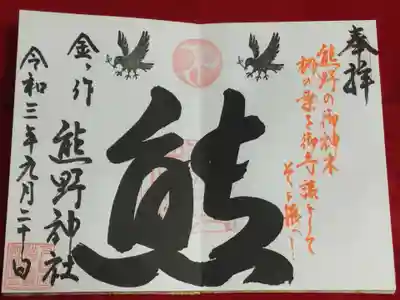 奉拝
熊野の御神木
梛の葉を御守護として
そよ風へ!
熊
金ヶ作
熊野神社
令和三年元月二十日